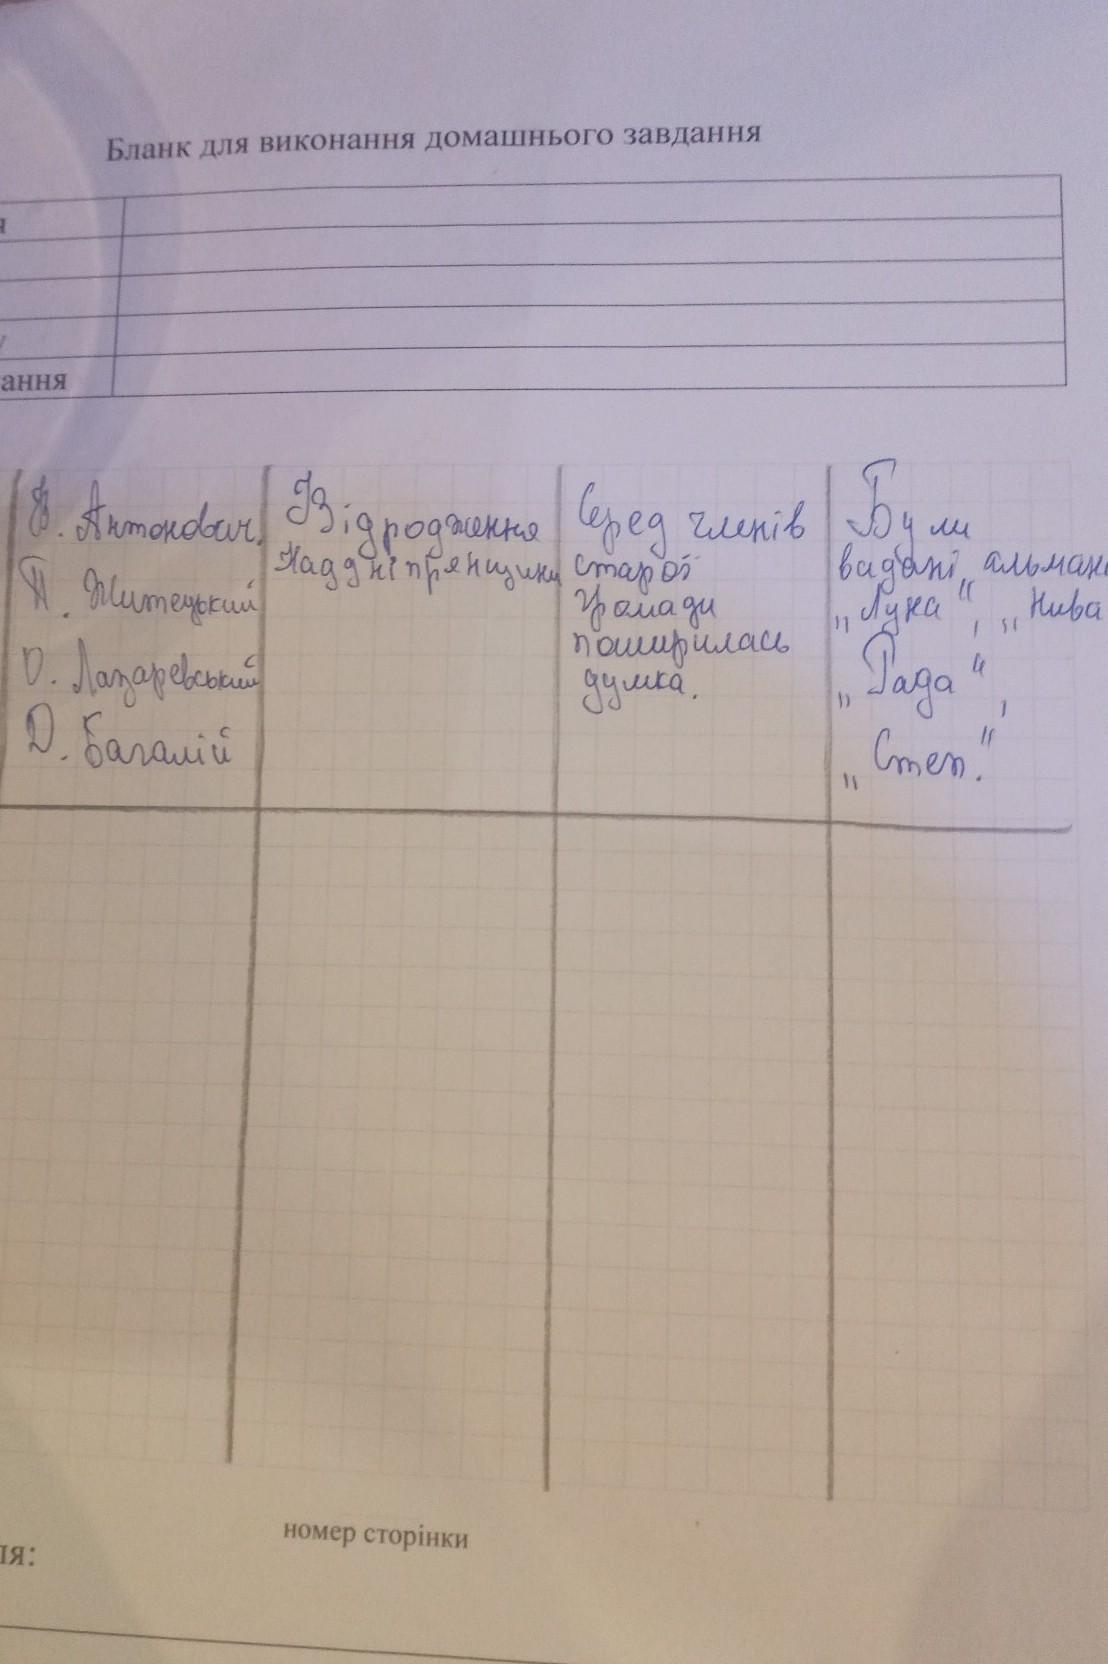 Бланк для виконання домашнього завдання
я
у
ання
В. Антонович,
П. Житецький
О. Лазаревський
Д. Багалій
Відродження
Наддніпрянщини
Серед членів
старої
громади
поширилась
думка.
Були
видані „альман
„Луна“, „Нива
„Рада“,
„Степ."
номер сторінки
ля: